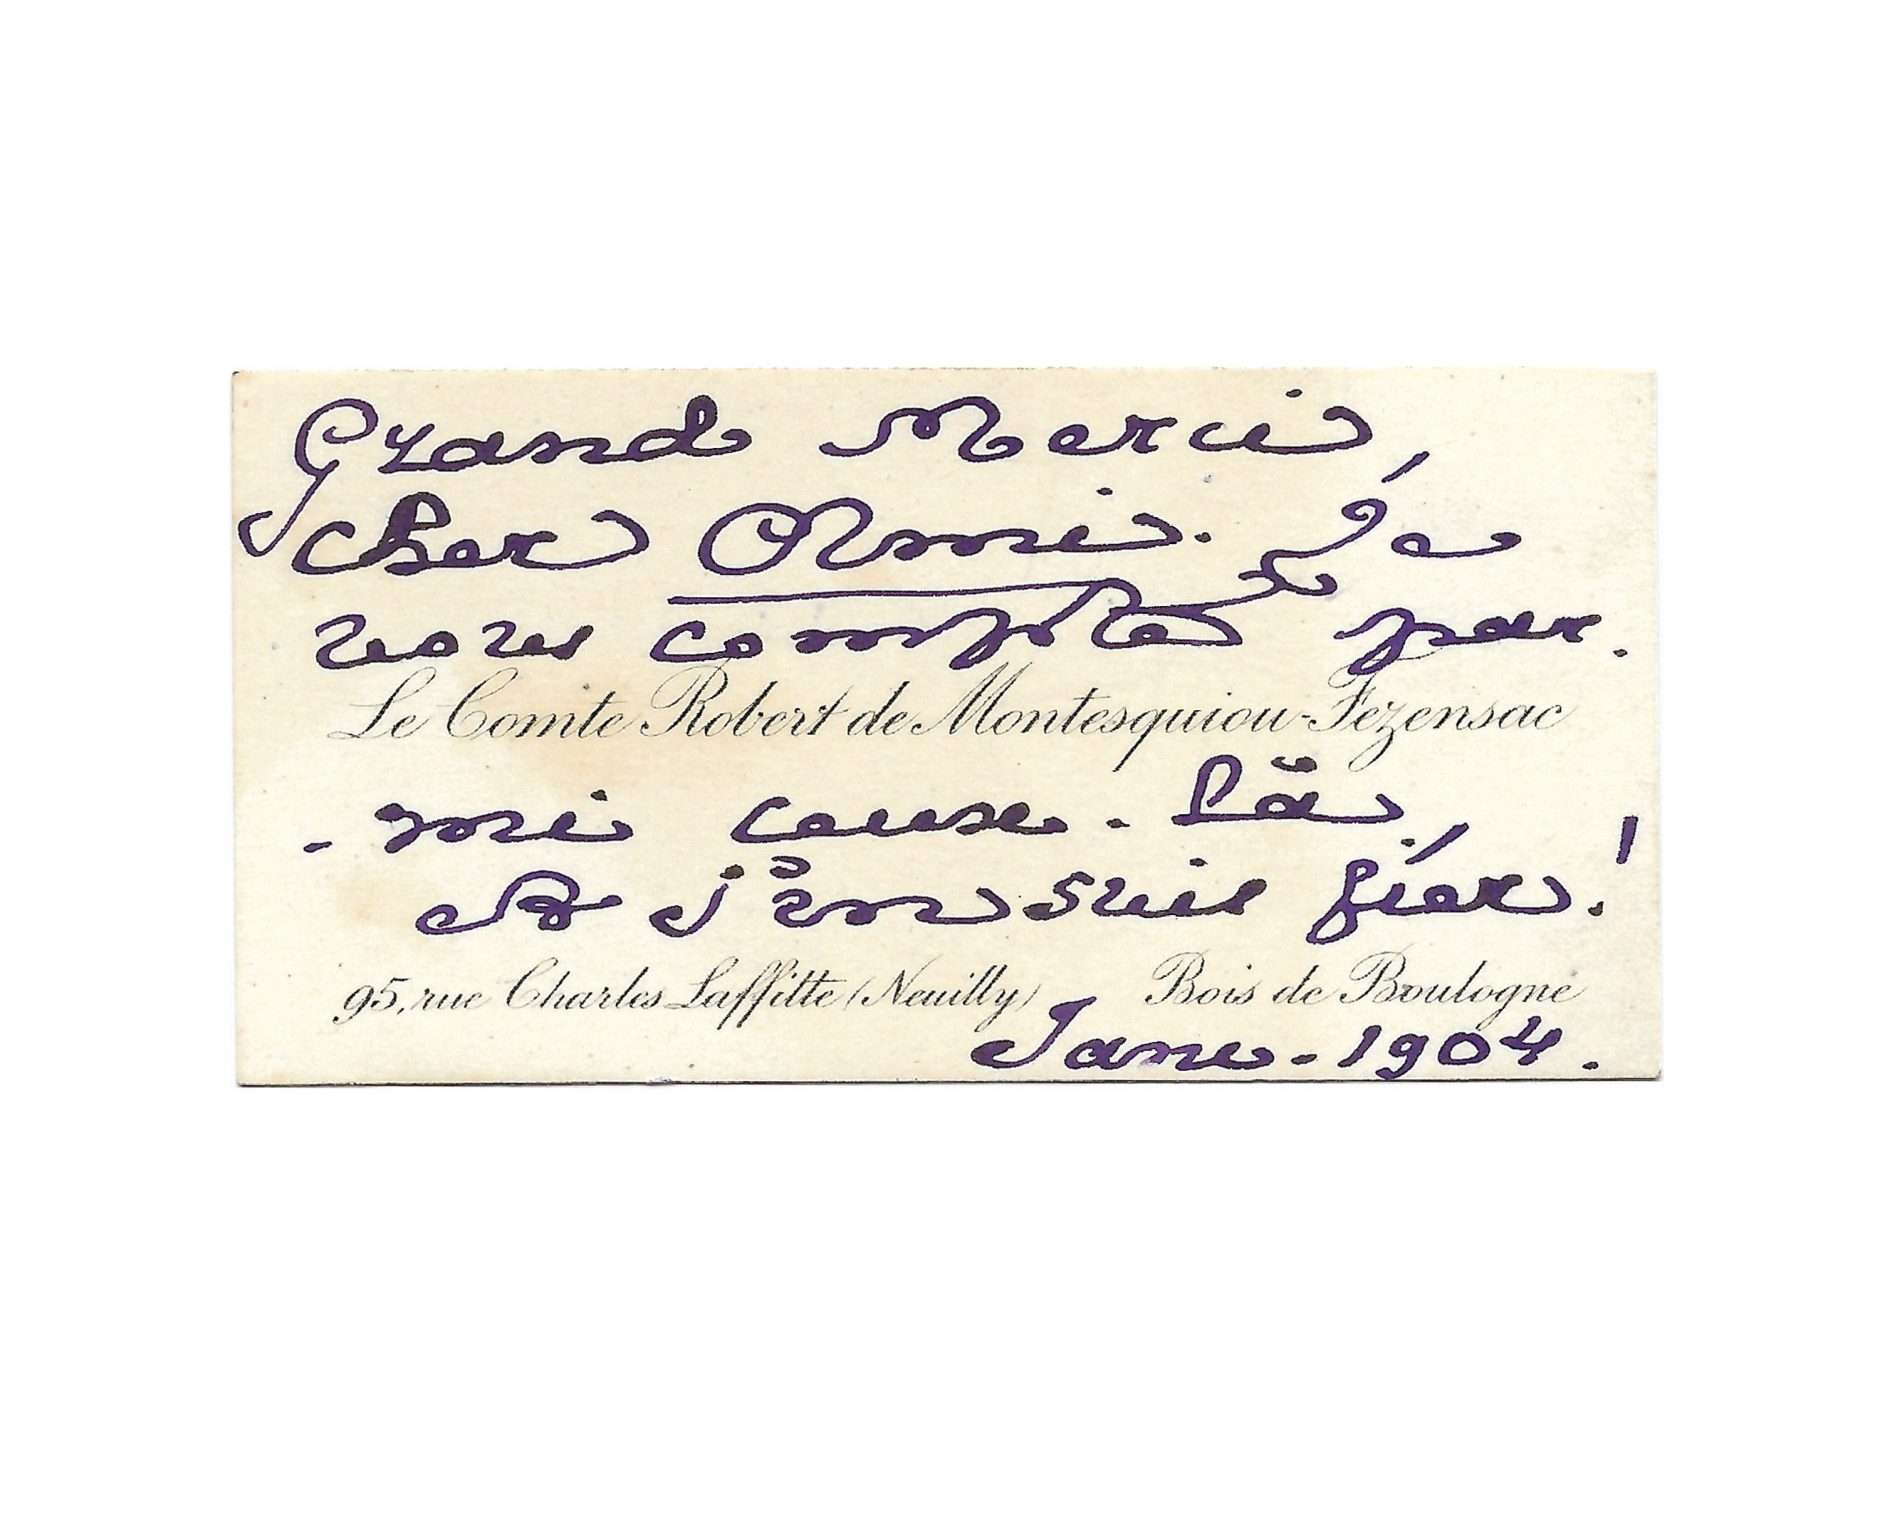 Grand Merci,
cher Ami. Je
vous compte par.
Le Comte Robert de Montesquiou-Fezensac
- mi ceux-là,
et j'en suis fier!
95, rue Charles Laffitte (Neuilly) Bois de Boulogne
Janv-1904.